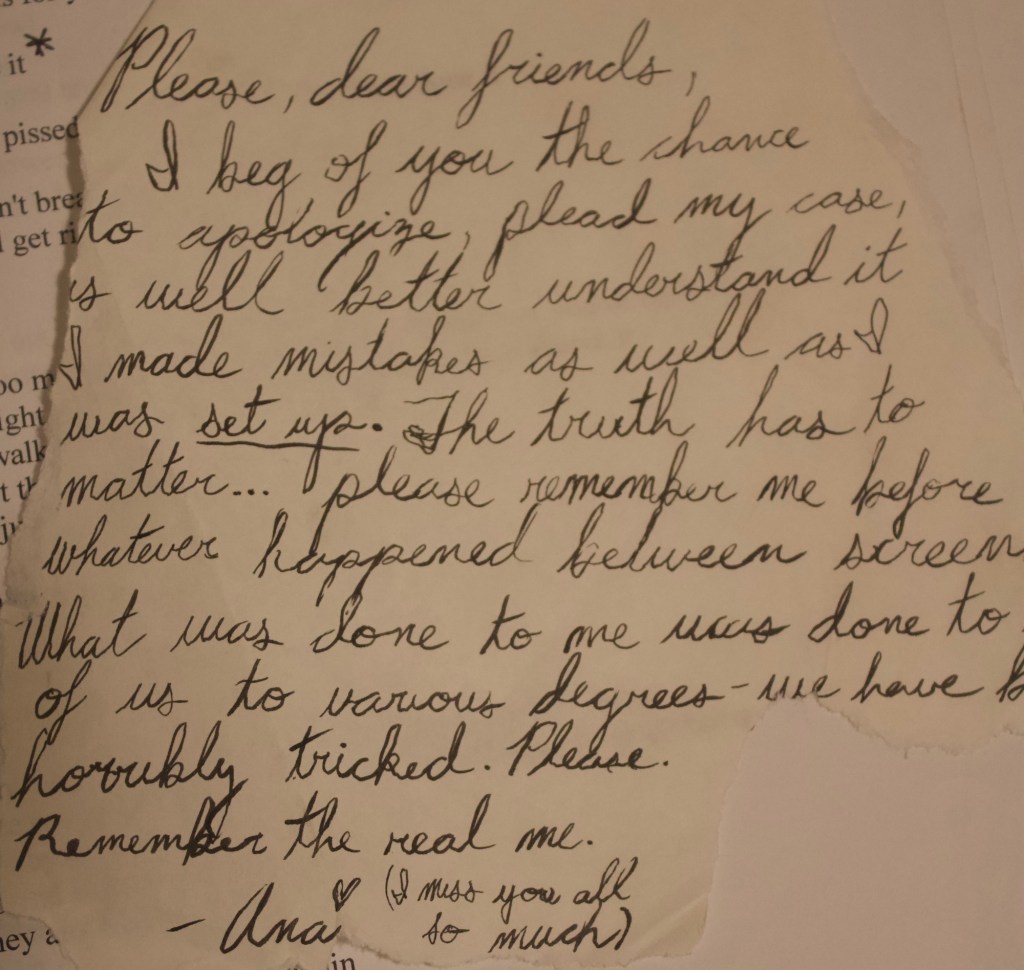 it*
pissed
n't brea
get ri
Please, dear friends,
I beg of you the chance
to apologize, plead my case,
as well better understand it
I made mistakes as well as I
was set up. The truth has to
matter... please remember me before
whatever happened between screen
What was done to me was done to
of us to various degrees - we have b
horribly tricked. Please.
Remember the real me.
- Ana ♥ (I miss you all
so much)
oo m
ight
walk
t th
ju
hey a
in